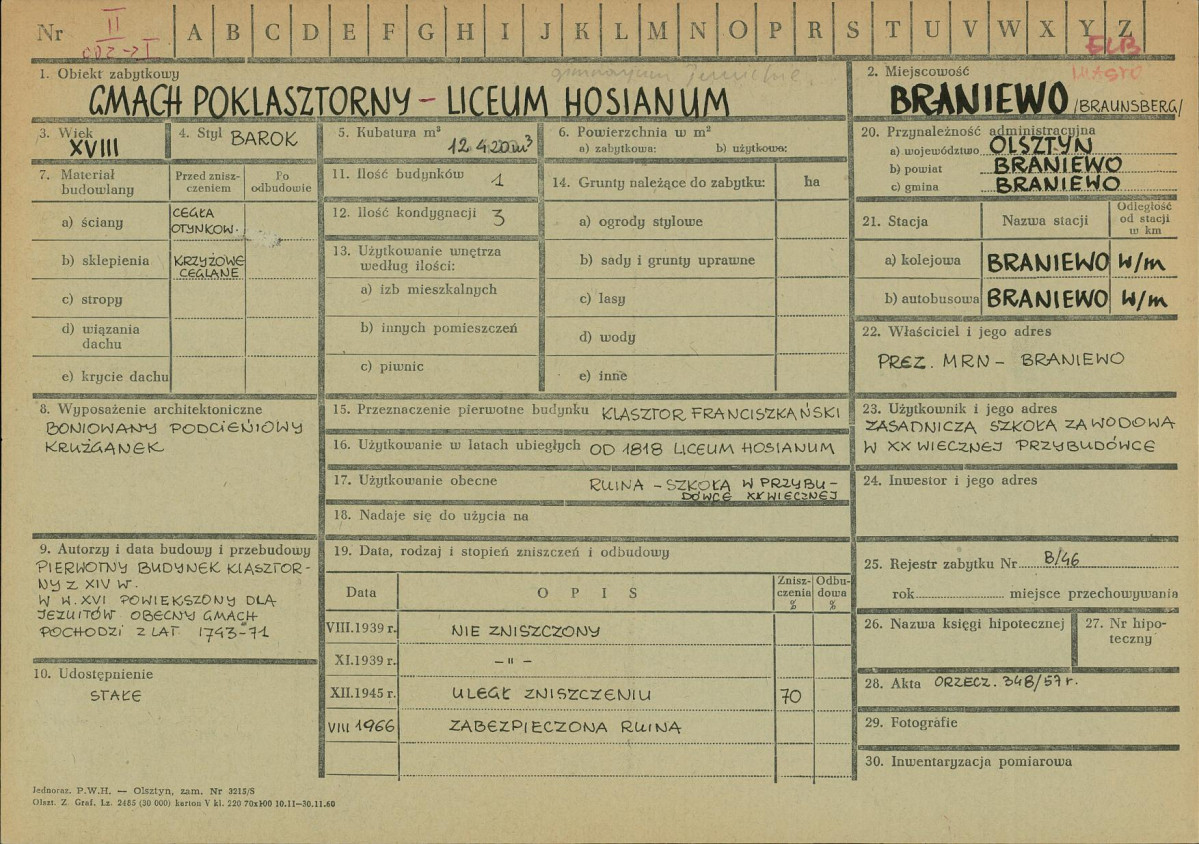 Nr II
ODZ → I
A B C D E F G H I J K L M N O P R S T U V W X Y Z
ELB
MIASTO
1. Obiekt zabytkowy
gimnazjum Jezuickie
GMACH POKLASZTORNY – LICEUM HOSIANUM
2. Miejscowość
BRANIEWO /BRAUNSBERG/
3. Wiek
XVIII
4. Styl BAROK
5. Kubatura m³
12.420 m³
6. Powierzchnia w m²
a) zabytkowa: b) użytkowe:
20. Przynależność administracyjna
a) województwo OLSZTYN
b) powiat BRANIEWO
c) gmina BRANIEWO
7. Materiał budowlany
Przed znisz-
czeniem
Po
odbudowie
a) ściany
CEGŁA
OTYNKOW.
b) sklepienia
KRZYŻOWE
CEGLANE
c) stropy
d) wiązania
dachu
e) krycie dachu
11. Ilość budynków 1
12. Ilość kondygnacji 3
13. Użytkowanie wnętrza
według ilości:
a) izb mieszkalnych
b) innych pomieszczeń
c) piwnic
14. Grunty należące do zabytku: ha
a) ogrody stylowe
b) sady i grunty uprawne
c) lasy
d) wody
e) inne
21. Stacja
Nazwa stacji
Odległość
od stacji
w km
a) kolejowa BRANIEWO w/m
b) autobusowa BRANIEWO w/m
22. Właściciel i jego adres
PREZ. MRN – BRANIEWO
8. Wyposażenie architektoniczne
BONIOWANY PODCIENIOWY
KRUŻGANEK
15. Przeznaczenie pierwotne budynku KLASZTOR FRANCISZKAŃSKI
16. Użytkowanie w latach ubiegłych OD 1818 LICEUM HOSIANUM
17. Użytkowanie obecne RUINA – SZKOŁA W PRZYBU-
DÓWCE XX WIECZNEJ
18. Nadaje się do użycia na
23. Użytkownik i jego adres
ZASADNICZA SZKOŁA ZAWODOWA
W XX WIECZNEJ PRZYBUDÓWCE
24. Inwestor i jego adres
9. Autorzy i data budowy i przebudowy
PIERWOTNY BUDYNEK KLASZTOR-
NY Z XIV W.
W W. XVI POWIEKSZONY DLA
JEZUITÓW OBECNY GMACH
POCHODZI Z LAT 1743-71
10. Udostępnienie
STAŁE
19. Data, rodzaj i stopień zniszczeń i odbudowy
Data
O P I S
Znisz-
czenia
%
Odbu-
dowa
%
VIII.1939 r. NIE ZNISZCZONY
XI.1939 r. – " –
XII.1945 r. ULEGŁ ZNISZCZENIU 70
VIII 1966 ZABEZPIECZONA RUINA
25. Rejestr zabytku Nr B/46
rok miejsce przechowywania
26. Nazwa księgi hipotecznej
27. Nr hipo-
teczny
28. Akta ORZECZ. 348/57 r.
29. Fotografie
30. Inwentaryzacja pomiarowa
Jednoraz. P.W.H. — Olsztyn, zam. Nr 3215/S
Olszt. Z. Graf. Lz. 2485 (30 000) karton V kl. 220 70x100 10.II—30.11.60